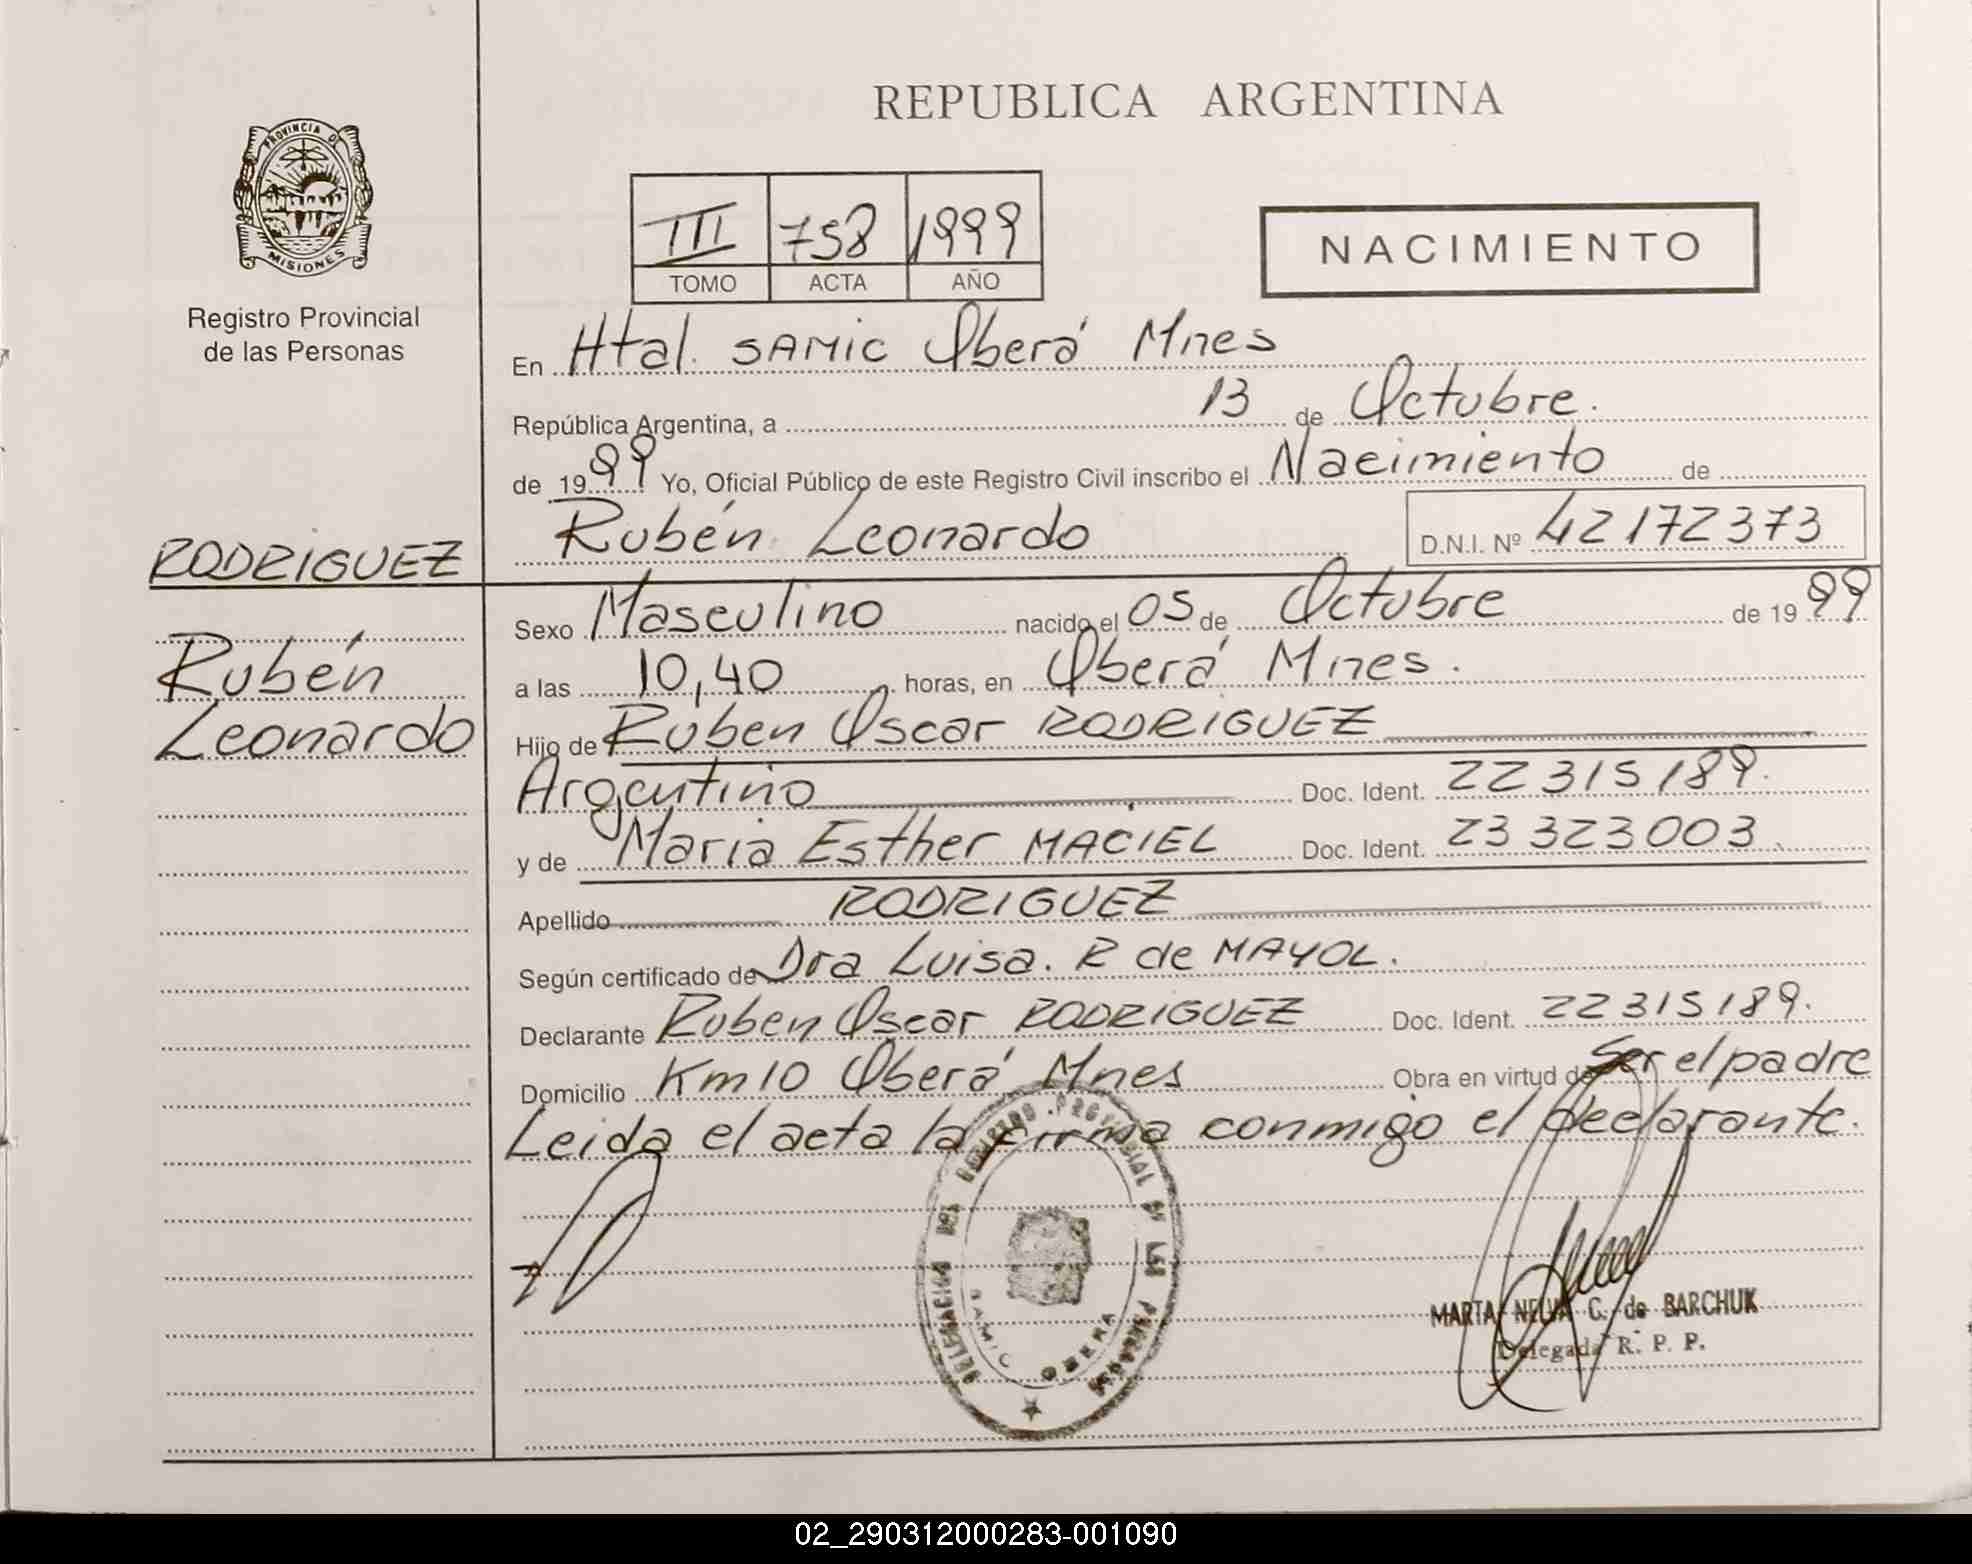 REPUBLICA ARGENTINA
PROVINCIA DE
MISIONES
Registro Provincial
de las Personas
III 758 1999
TOMO ACTA AÑO
NACIMIENTO
En Htal. SAMIC Oberá Mnes
República Argentina, a 13 de Octubre.
de 1999 Yo, Oficial Público de este Registro Civil inscribo el Nacimiento de
Rubén Leonardo D.N.I. Nº 42172373
RODRIGUEZ
Rubén
Leonardo
Sexo Masculino nacido el 05 de Octubre de 1999
a las 10,40 horas, en Oberá Mnes.
Hijo de Ruben Oscar RODRIGUEZ
Argentino Doc. Ident. 22 315 189.
y de Maria Esther MACIEL Doc. Ident. 23 323 003
Apellido RODRIGUEZ
Según certificado de Dra Luisa. R de MAYOL.
Declarante Ruben Oscar RODRIGUEZ Doc. Ident. 22 315 189.
Domicilio Km 10 Oberá Mnes Obra en virtud de Ser el padre
Leida el acta la firma conmigo el declarante.
DELEGACION DEL REGISTRO PROVINCIAL DE LAS PERSONAS
SAMIC OBERA
MARTA NELIA C. de BARCHUK
Delegada R. P. P.
02_290312000283-001090